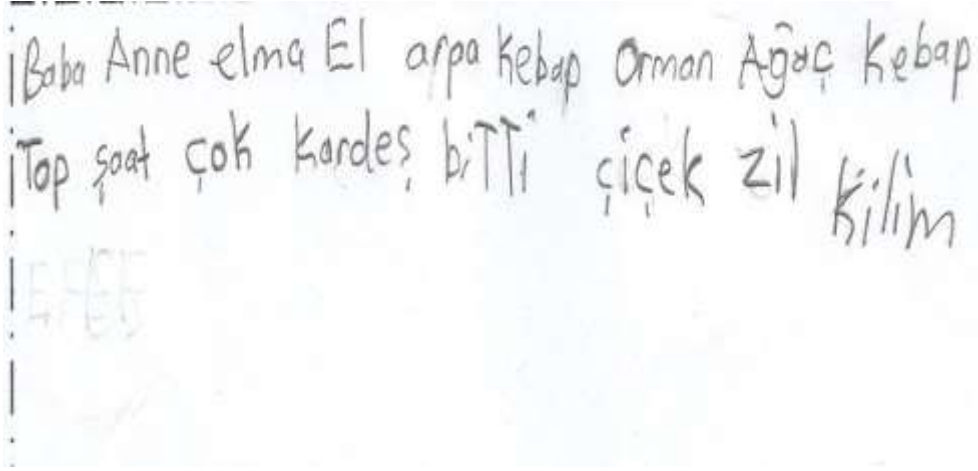 Baba Anne elma El arpa Kebap Orman Ağaç Kebap
Top şaat çok kardeş biTTi çiçek zil kilim